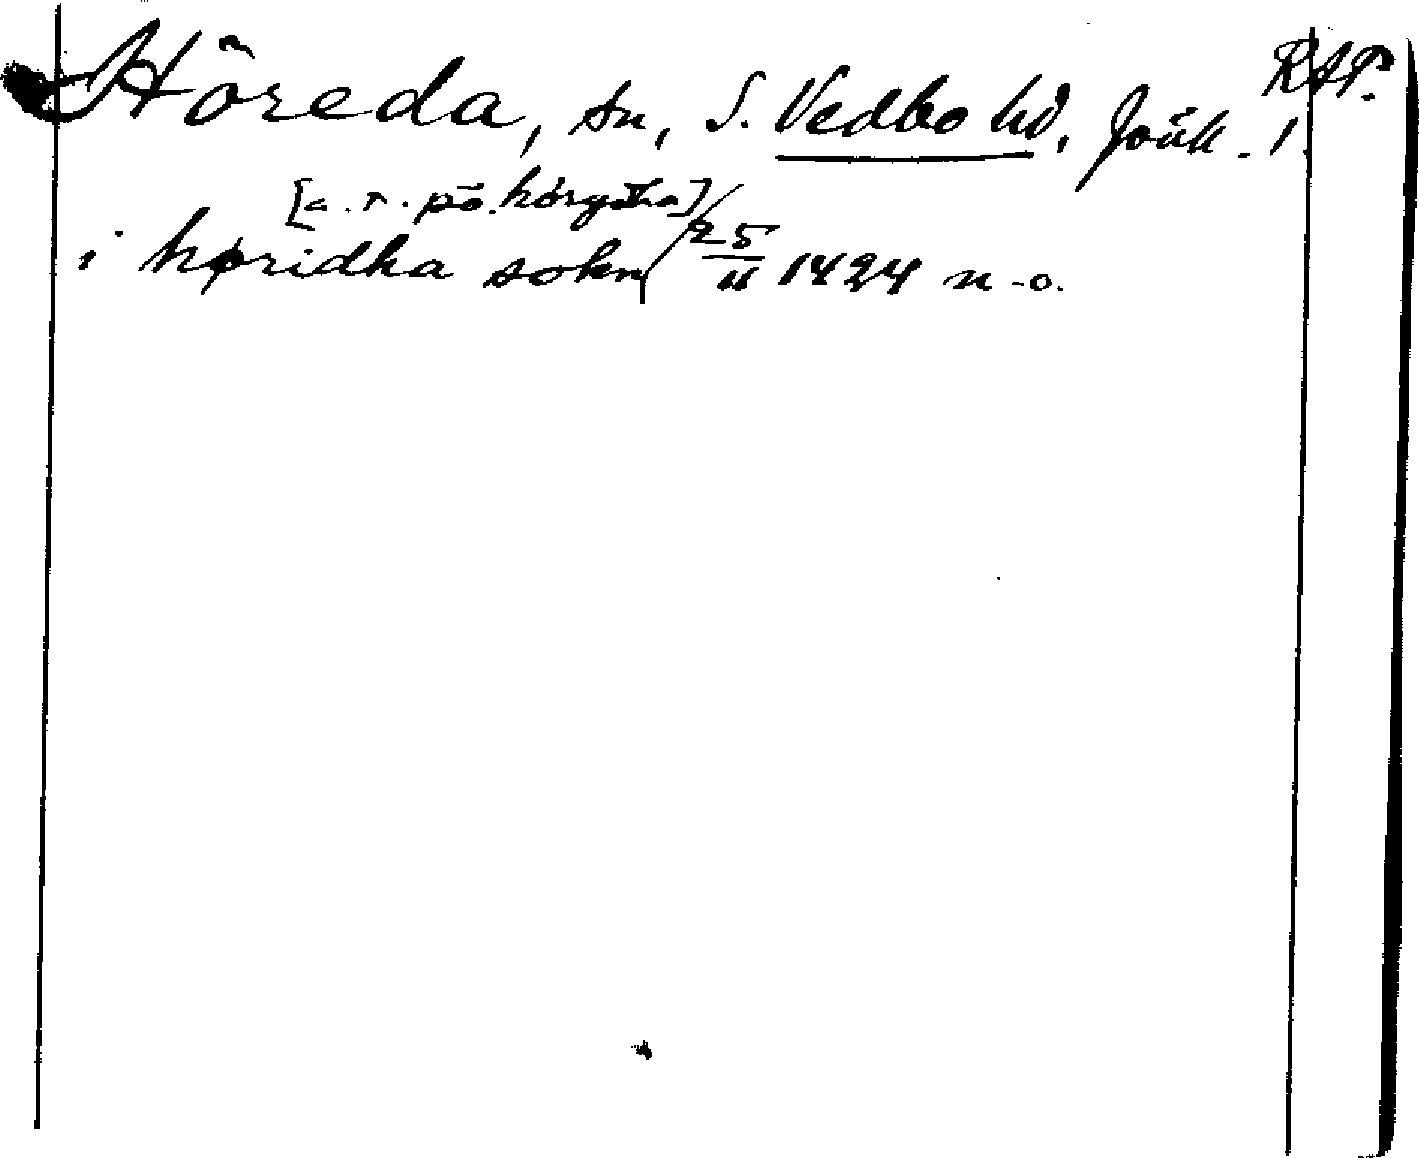 Höreda, sn, S. Vedbo hd, Jönk. l. RAP.
[a. r. på
i høridha sokn 25/11 1424 n-o.